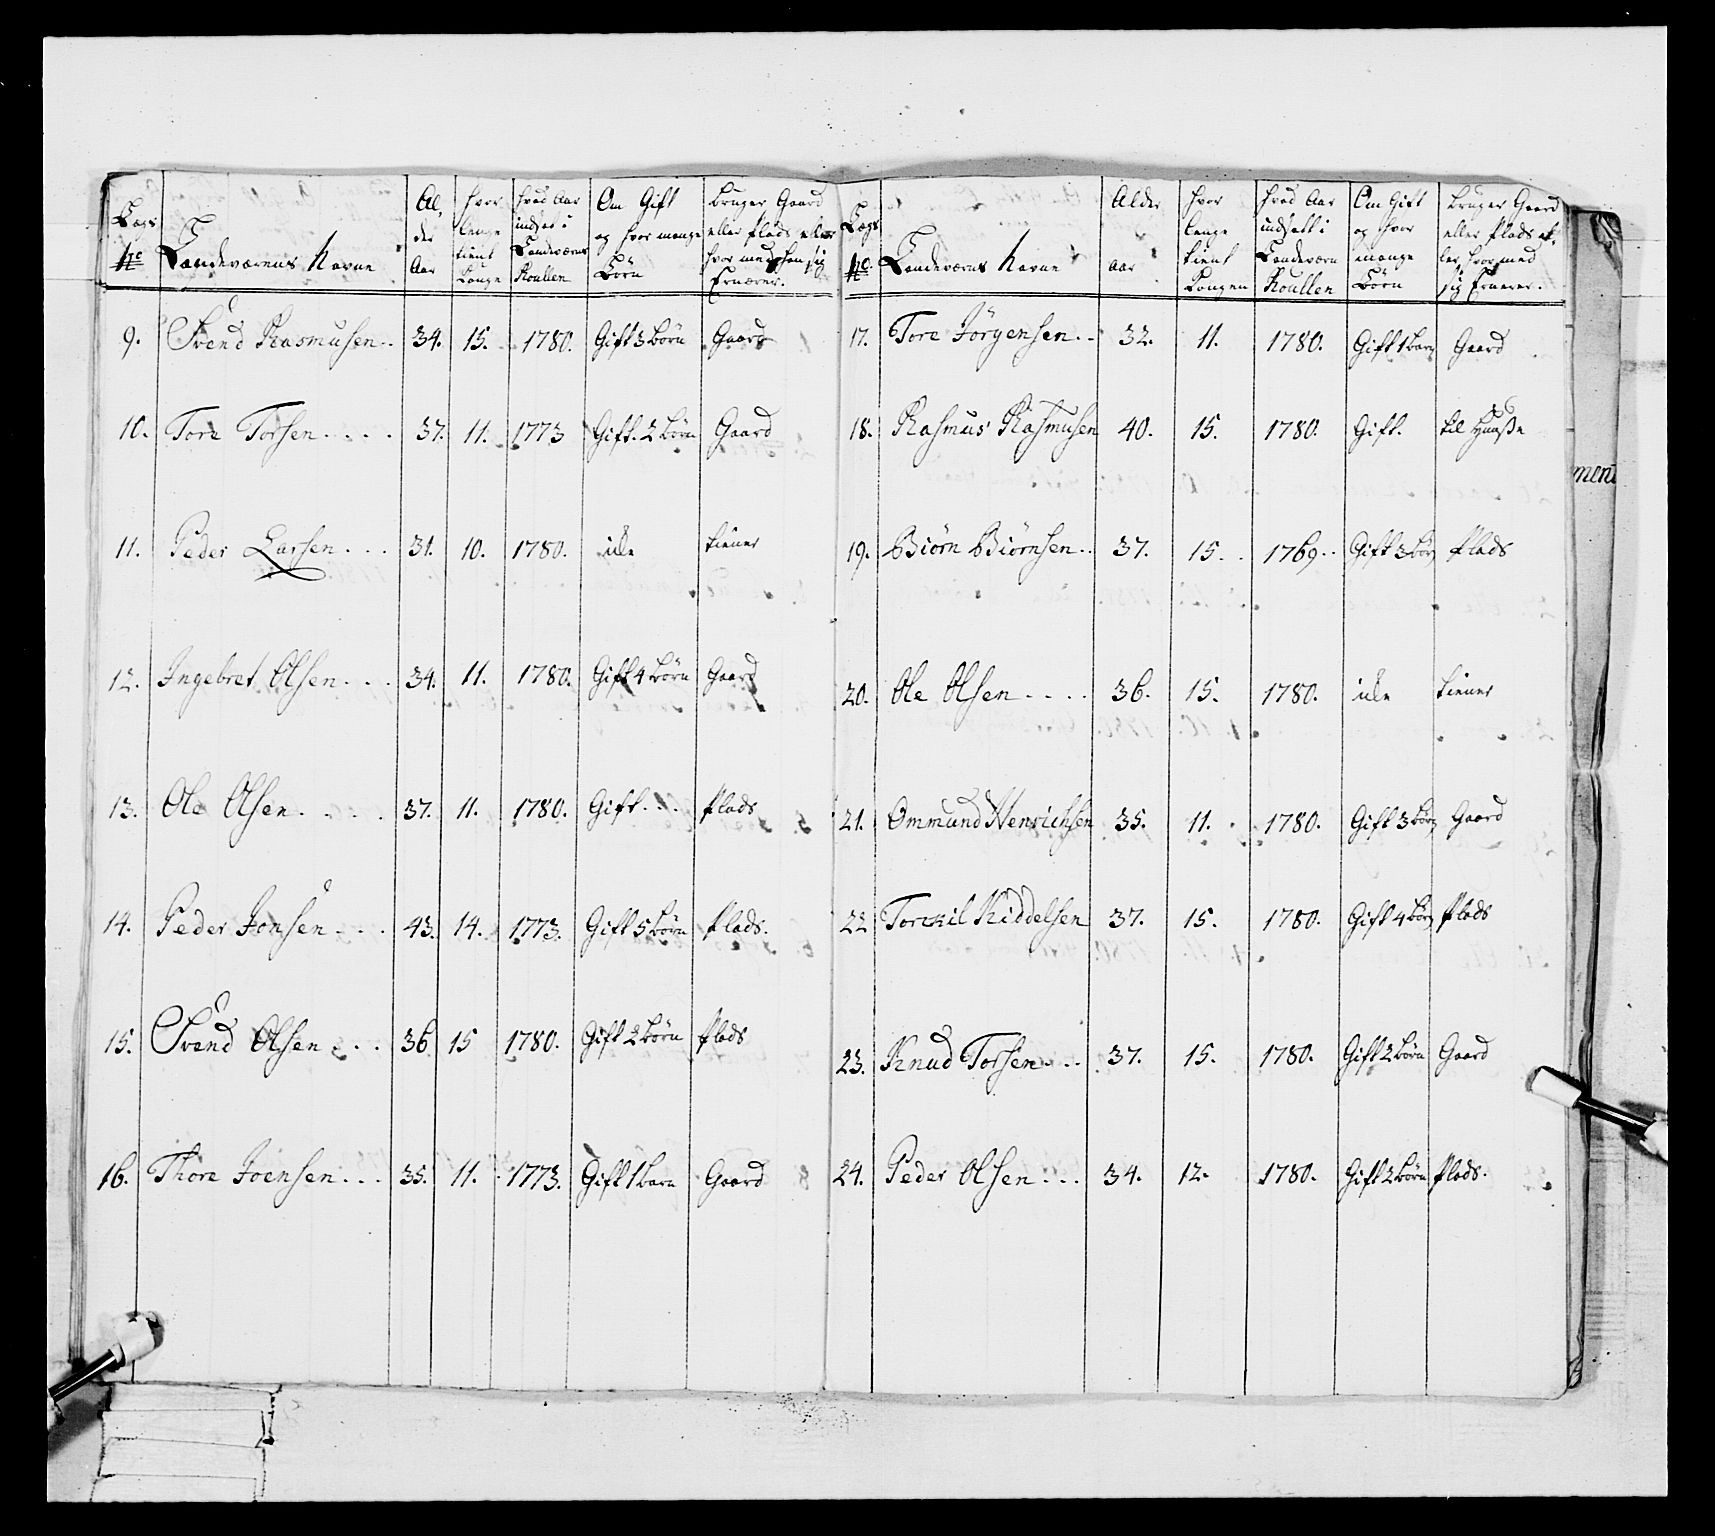 Lægs No | Landeværnets Navne | Alder Aar | hvor lenge tient Konge | hvad Aar indsat i Landeværns Roullen | Om Gift og hvor mange Börn | bruger Gaard eller Plads eller hvor med han sig Ernærer.
9. Svend Rasmusen.. 34. 15. 1780. Gift 3 börn Gaard
10. Tore Torsen.... 37. 11. 1773 Gift. 2 börn Gaard
11. Peder Larsen... 31. 10. 1780. ide tiener
12. Ingebret Olsen... 34. 11. 1780. Gift 4 börn Gaard
13. Ole Olsen.... 37. 11. 1780. Gift... Plads
14. Peder Jonsen... 43. 14. 1773. Gift 5 börn Plads.
15. Svend Olsen... 36 15 1780. Gift 2 börn Plads
16. Thore Joensen... 35. 11. 1773. Gift 1 barn Gaard
Lægs No. | Landeværns Navne | Alder aar | hvor lenge tient Kongen | hvad Aar indsatt i Landeværn Roullen | Om Gift og hvor mange Börn | bruger Gaard eller Plads eller hvor med sig Ernerer.
17. Tore Jörgensen.. 32. 11. 1780. Gift 1 barn Gaard
18. Rasmus Rasmusen 40. 15. 1780. Gift. til Huuse
19. Biörn Biörnsen.. 37. 15. 1769.. Gift 3 börn Plads
20. Ole Olsen.... 36. 15. 1780. ide tiener
21. Ommund Henrichsen 35. 11. 1780. Gift 3 börn Gaard
22 Torckil Kiddelsen 37. 15. 1780. Gift 4 börn Plads
23. Knud Torsen... 37. 15. 1780. Gift 2 börn Gaard
24. Peder Olsen... 34. 12. 1780. Gift 2 börn Plads.
ment